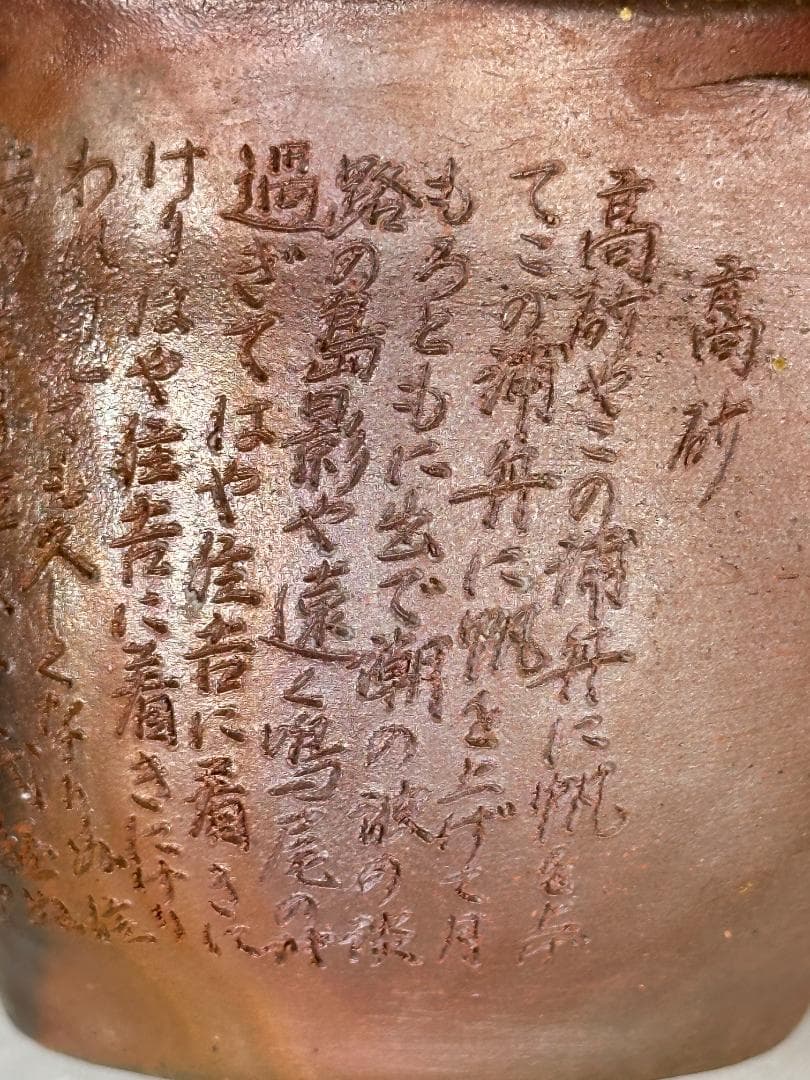 高砂
高砂やこの浦舟に帆を
てこの浦舟に帆を上げて月
もろともに出で潮の波の淡
路の島影や遠く鳴尾の沖
過ぎてはや住吉に着きに
けりはや住吉に着きにけり
われ見ても久しくなりぬ住
吉の